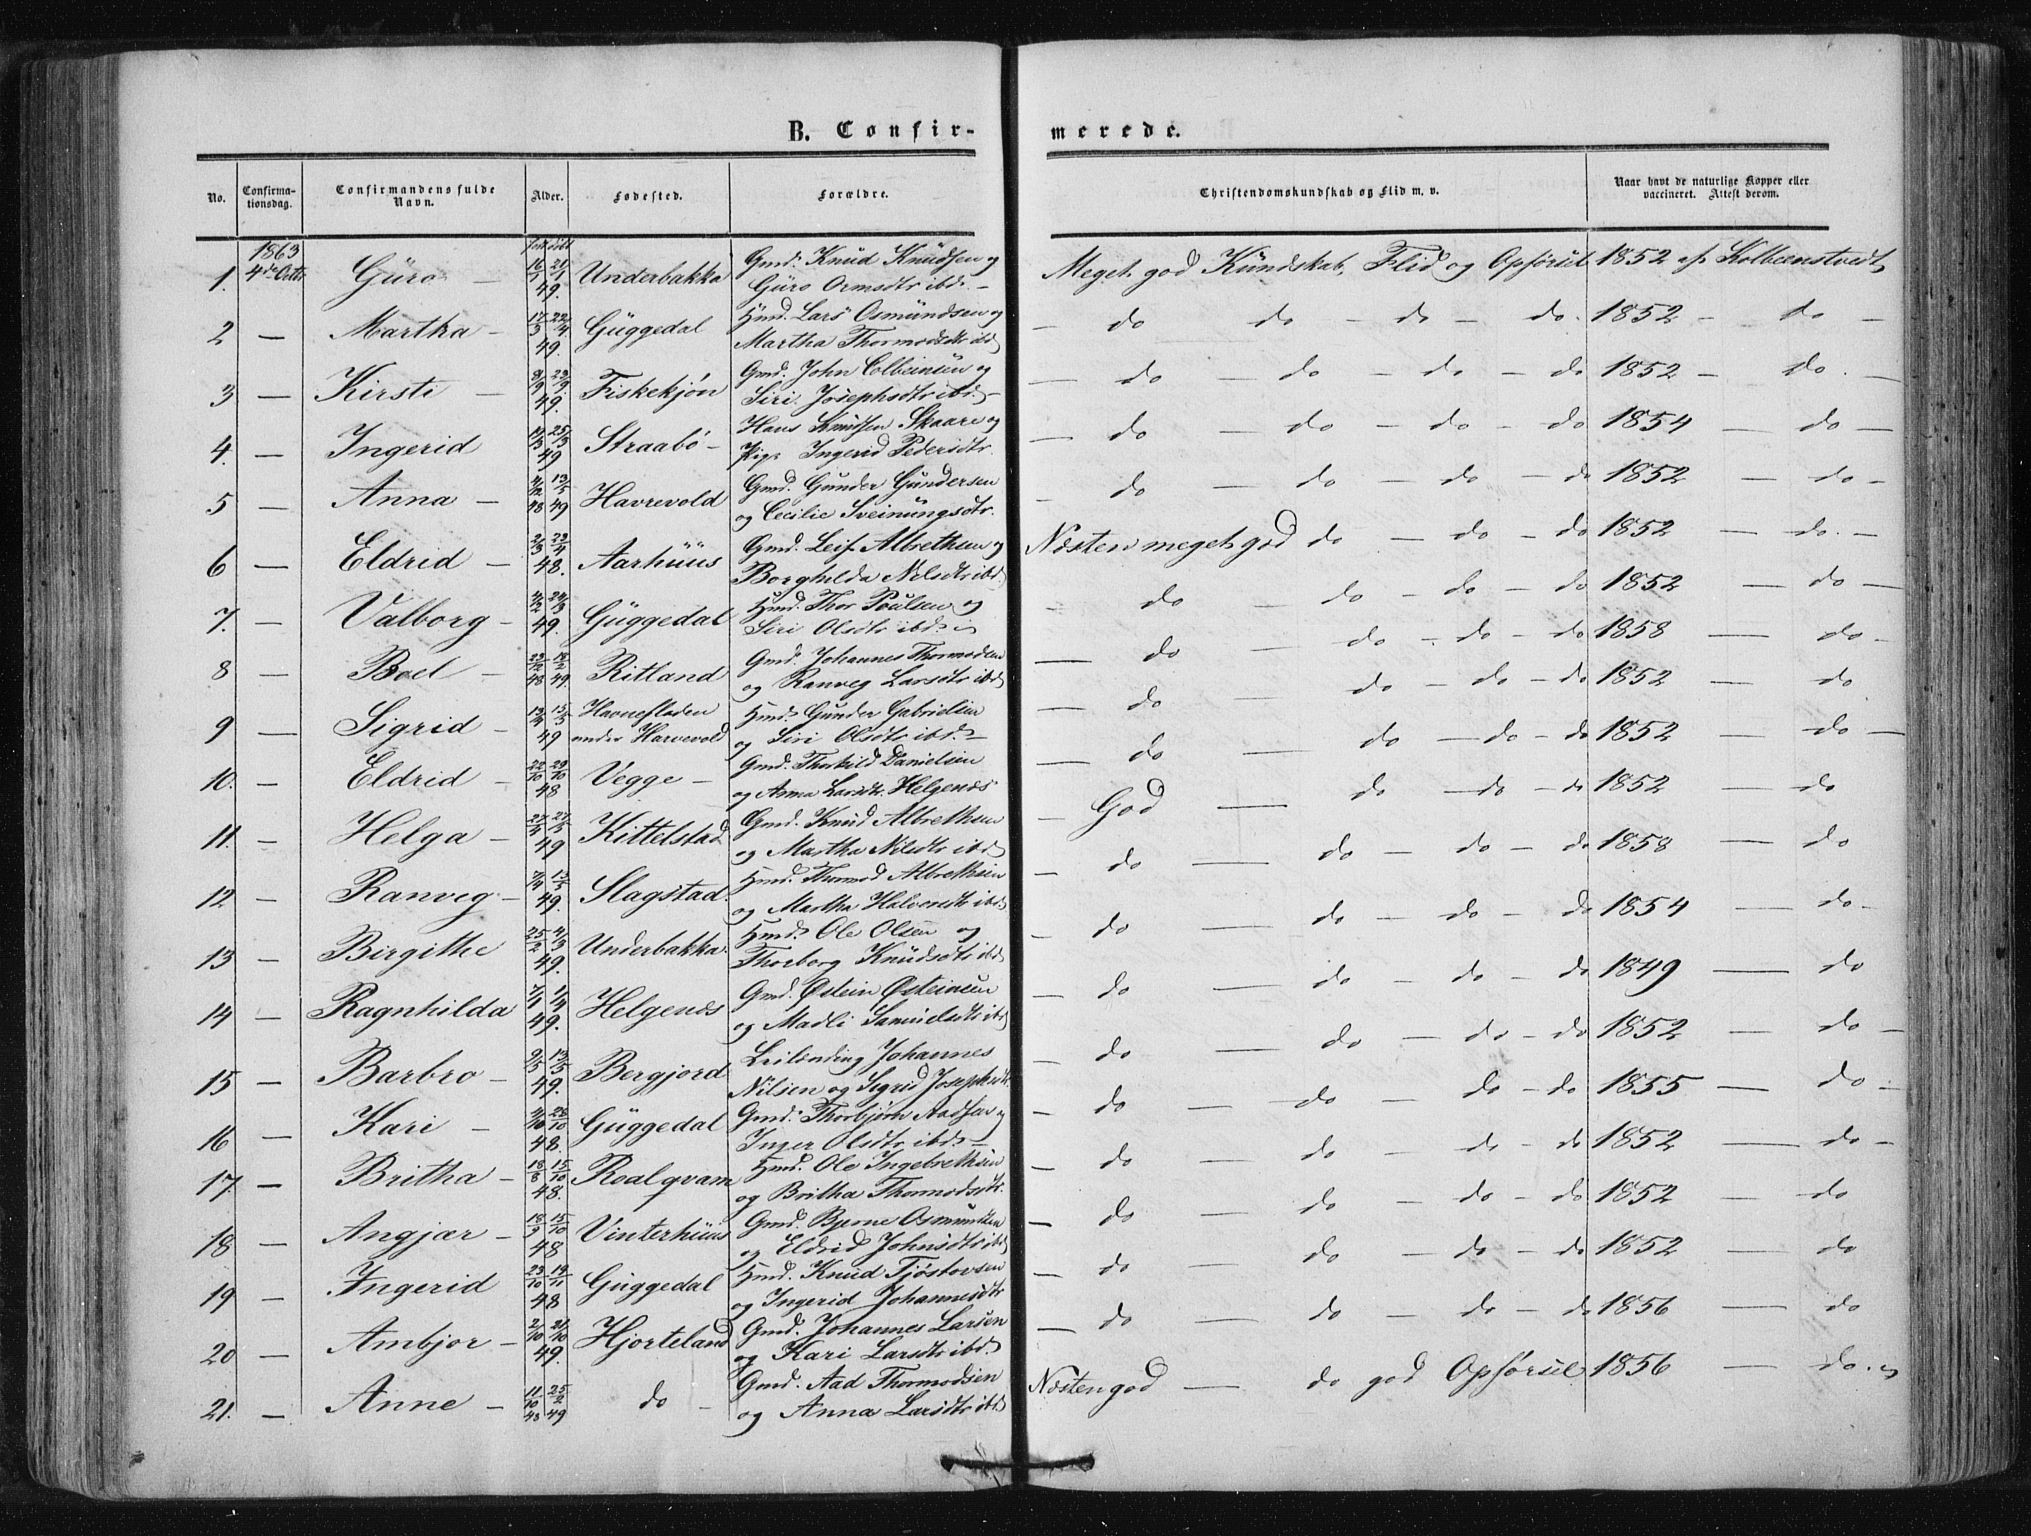 B. Confir-
merede.
No.
Confirma-
tionsdag.
Confirmandens fulde
Navn.
Alder.
Fødested.
Forældre.
Christendomskundskab og Flid m. v.
Naar havt de naturlige Kopper eller
vaccineret. Attest derom.
1863
1. 4de Octbr Güro — 49. Underbakka Gmd. Knud Knudsen og
Güro Ormsdtr ibd. — Meget god Kündskab, Flid og Opførsel 1852 af Kolbeenstvedt
2 — Martha — 17/3 22/4 49. Güggedal Hmd. Lars Osmündsen og
Martha Thormodsdtr ibd — do do — do — do. 1852 — do —
3 — Kirsti — 8/9 23/9 49. Fiskekjøn Gmd. John Colbeinsen og
Siri Josephsdtr ibd. — — do — do — do — do 1852 — do. —
4. — Ingerid 25/3 49 Straabø — Hans Knutsen Skaare og
Pige Ingerid Pedersdtr. — do — do — do — do 1854 — do —
5 — Anna — 4/12 48 13/5 49 Havrevold Gmd. Gunder Gundersen
og Cecilie Sveinungsdtr. — do — do — do — do 1852 — do —
6 — Eldrid — 2/3 23/4 48. Aarhüüs Gmd. Leif Albrethsen og
Borghilda Nilsdtr ibd. Næsten meget god do — do — do 1852 — do. —
7. — Valborg — 4/2 24/3 49. Güggedal Hmd. Thor Poulsen og
Siri Olsdtr ibd. — do — do — do — do 1852 — do —
8 — Boel — 23/12 48 18/2 49. Ritland Gmd. Johannes Thormodsen
og Ranveg Larsdtr ibd — do — do — do — do 1858 — do —
9 — Sigrid — 15/5 49 Havnefladen
under Harvevold Hmd. Gunder Gabrielsen
og Siri Olsdtr ibd. — — do — do — do — do 1852 — do
10. — Eldrid — 22/10 29/10 48 Vegge — Gmd. Thorkild Danielsen
og Anna Larsdtr. Helgenæs — do — do — do — do 1852 — do —
11. — Helga — 49 Kittelstad Gmd. Knud Albrethsen
og Martha Nilsdtr ibd — God — do — do — do 1852 — do
12 — Ranveg — 49. Slagstad. Hmd. Thormod Albrethsen
og Martha Halvorsdtr ibd — do — do — do — do 1858 — do
13 — Birgithe 25/2 4/3 49. Underbakka. Hmd. Ole Olsen og
Thorborg Knüdsdtr ibd — do — do — do — do 1854 — do —
14 — Ragnhilda 49. Helgenæs Gmd. Østein Østeinsen
og Madli Samuelsdtr ibd — do — do — do — do 1849 — do
15 — Barbro — 13/5 49. Bergjord Leilending Johannes
Nilsen og Sigrid Josephsdtr. — do — do — do — do 1852 — do —
16 — Kari — 4/10 28/10 48. Güggedal Gmd. Thorbjørn Aadsen og
Inger Olsdtr ibd. — — do — do — do — do 1855 — do —
17. — Britha — 18/8 15/10 48. Roalqvam Hmd. Ole Ingebrethsen
og Britha Thormodsdtr. — do — do — do — do 1852 — do —
18 — Angjær — 18/9 15/10 48 Vinterhüüs Gmd. Bjerne Osmundsen
og Eldrid Johnsdtr ibd — do — do — do — do 1852 — do
19 — Ingerid 23/10 19/11 48 Güggedal Hmd. Knud Tjøstovsen
og Ingerid Johannesdtr — do — do — do — do 1852 — do
20 — Ambjor — 2/10 21/10 49. Hjorteland Gmd. Johannes Larsen
og Kari Larsdtr ibd — do — do — do — do 1856 — do
21. — Anne — 11/10 48 25/2 49 do — Gmd. Aad Thormodsen
og Anna Larsdtr ibd Næsten god — do god Opførsel 1856 — do. —